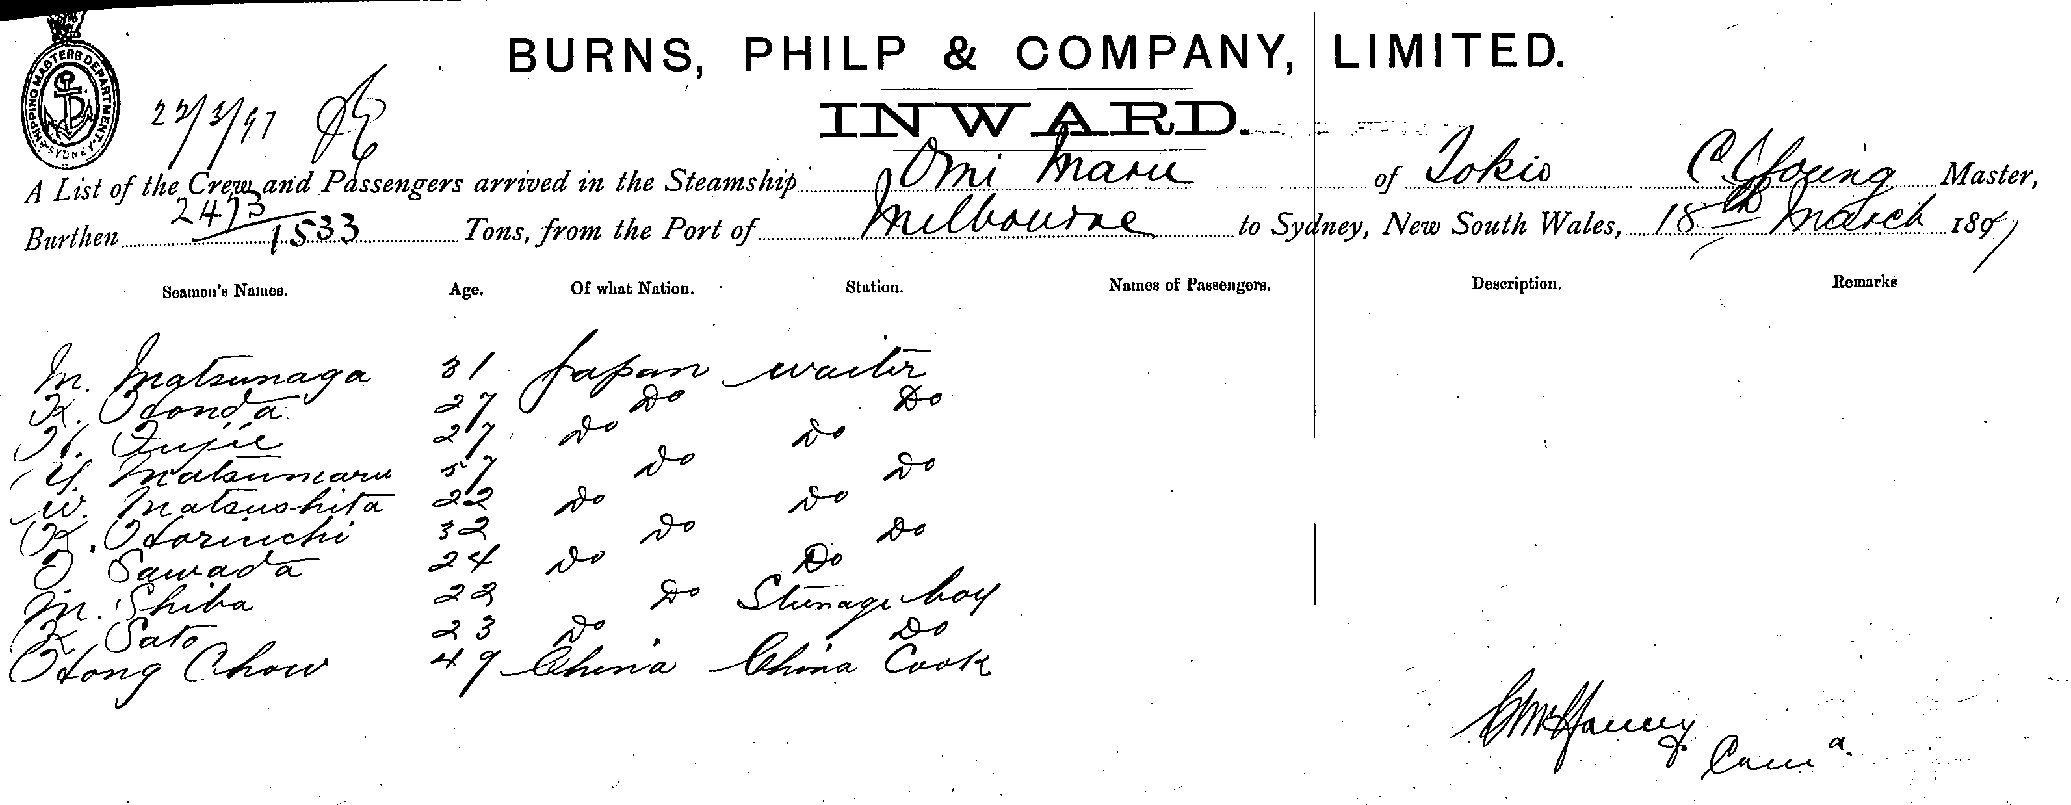 BURNS, PHILP & COMPANY, LIMITED.
SHIPPING MASTERS DEPARTMENT SYDNEY
22/3/97
INWARD.
A List of the Crew and Passengers arrived in the Steamship Omi Maru of Tokio C. Young Master,
Burthen 2473/1533 Tons, from the Port of Melbourne to Sydney, New South Wales, 18th March 1897
Seamen's Names. Age. Of what Nation. Station. Names of Passengers. Description. Remarks
M. Matsunaga 31 Japan waiter
K. Honda 27 Do Do
H. Fujie 27 Do Do
Y. Matsumaru 57 Do Do
W. Matsushita 22 Do Do
K. Horiuchi 32 Do Do
Sawada 24 Do Do
M. Shiba 22 Do Steerage boy
K Sato 23 Do Do
Hong Chow 49 China China Cook